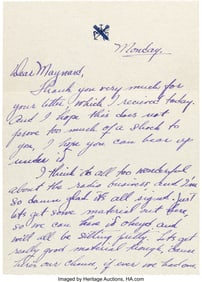 Monday.
Dear Maynard,
Thank you very much for
your letter, which I received today.
And I hope this does not
prove too much of a shock to
you, I hope you can bear up
under it.
I think its all too wonderful
about the radio business and I'm
so damn glad its all signed. Just
lets get some material out there,
so we can them it okayed, and
will all be sitting pretty. Lets get
really good material though, cause
heres our chance, if ever we had one.
Imaged by Heritage Auctions, HA.com